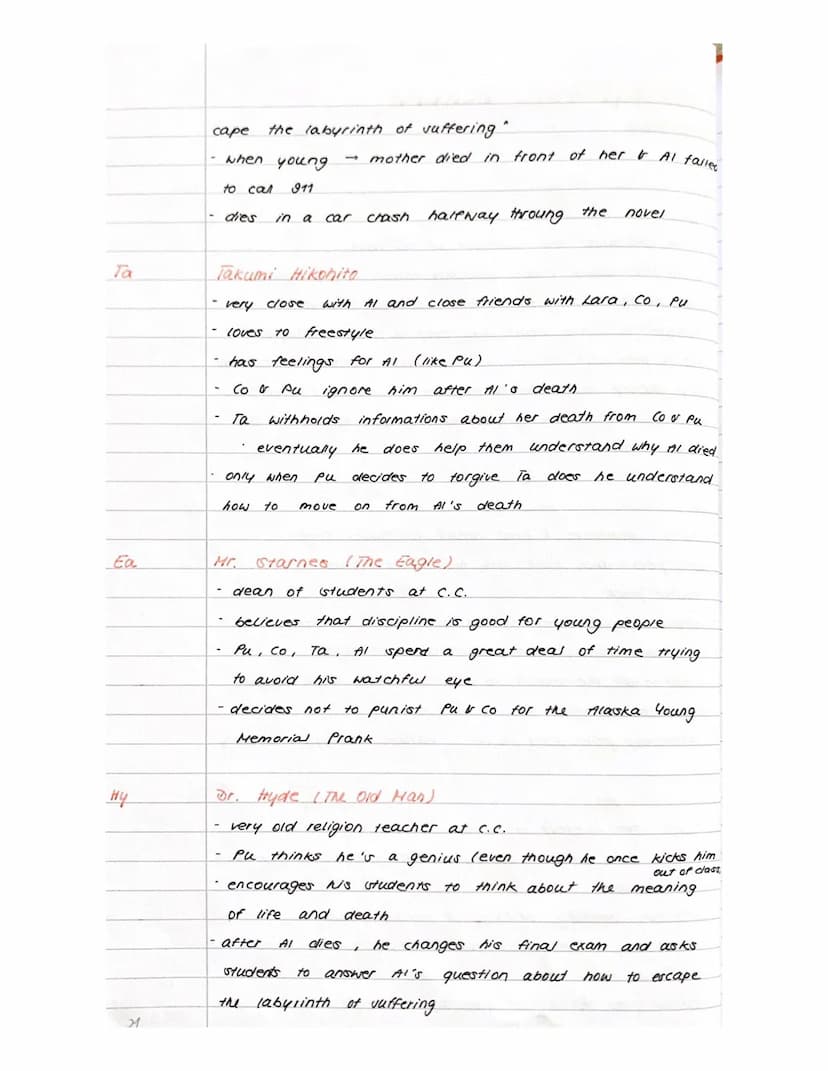 cape the labyrinth of suffering"
- when young → mother died in front of her & Al failed
to call 911
- dies in a car crash halfway throung the novel
Ta Takumi Hikohito
- very close with Al and close friends with Lara, Co, Pu
- loves to freestyle
- has feelings for Al (like Pu)
- Co & Pu ignore him after Al's death
- Ta withholds informations about her death from Co & Pu
· eventually he does help them understand why Al died
· only when Pu decides to forgive Ta does he understand
how to move on from Al's death
Ea Mr. Starnes (The Eagle)
- dean of students at C.C.
· believes that discipline is good for young people
- Pu, Co, Ta, Al spend a great deal of time trying
to avoid his watchful eye
- decides not to punist Pu & Co for the Alaska Young
Memorial Prank
Hy Dr. Hyde (The Old Man)
- very old religion teacher at C.C.
- Pu thinks he's a genius (even though he once kicks him
out of class
· encourages his students to think about the meaning
of life and death
- after Al dies, he changes his final exam and asks
students to answer Al's question about how to escape
the labyrinth of suffering